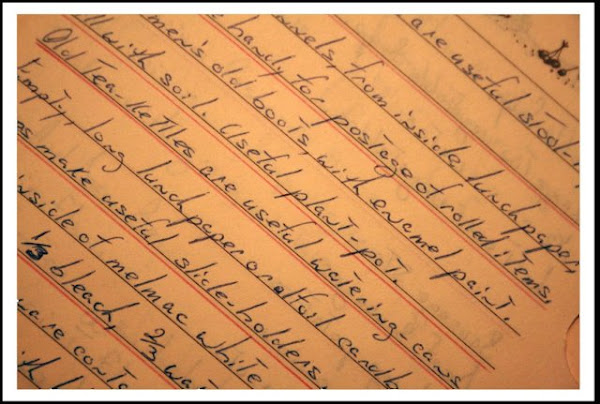 are useful stool-
wels from inside lunchpaper,
e handy for postage of rolled items.
men's old boots, with enamel paint.
ll with soil. Useful plant-pot.
Old Tea-Kettles are useful watering-cans
mpty, long lunchpaper or altfoil cardb
es make useful slide-holders.
nside of melmac white
1/3 bleach, 2/3 wat
are conta
ith